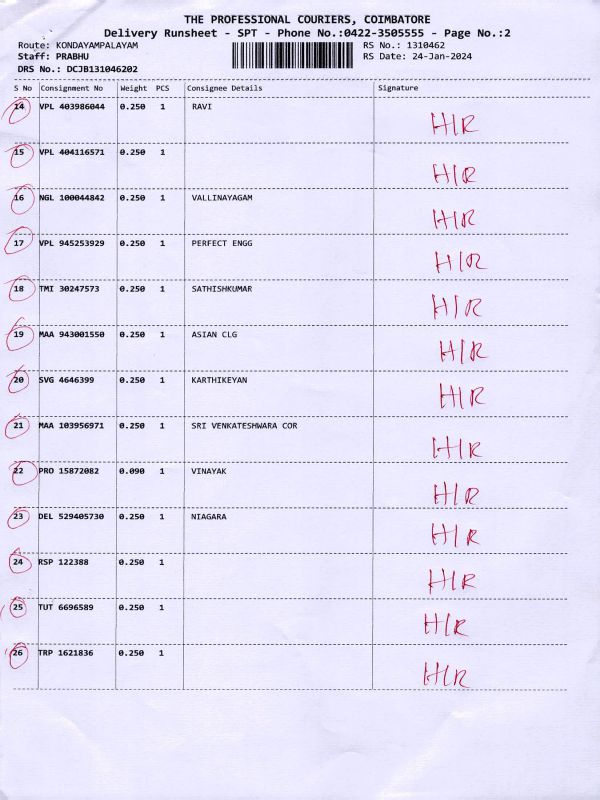 THE PROFESSIONAL COURIERS, COIMBATORE
Delivery Runsheet - SPT - Phone No.:0422-3505555 - Page No.:2
Route: KONDAYAMPALAYAM RS No.: 1310462
Staff: PRABHU RS Date: 24-Jan-2024
DRS No.: DCJB131046202
S No Consignment No Weight PCS Consignee Details Signature
14 VPL 403986044 0.250 1 RAVI H/R
15 VPL 404116571 0.250 1 H/R
16 NGL 100044842 0.250 1 VALLINAYAGAM H/R
17 VPL 945253929 0.250 1 PERFECT ENGG H/R
18 TMI 30247573 0.250 1 SATHISHKUMAR H/R
19 MAA 943001550 0.250 1 ASIAN CLG H/R
20 SVG 4646399 0.250 1 KARTHIKEYAN H/R
21 MAA 103956971 0.250 1 SRI VENKATESHWARA COR H/R
22 PRO 15872082 0.090 1 VINAYAK H/R
23 DEL 529405730 0.250 1 NIAGARA H/R
24 RSP 122388 0.250 1 H/R
25 TUT 6696589 0.250 1 H/R
26 TRP 1621836 0.250 1 H/R